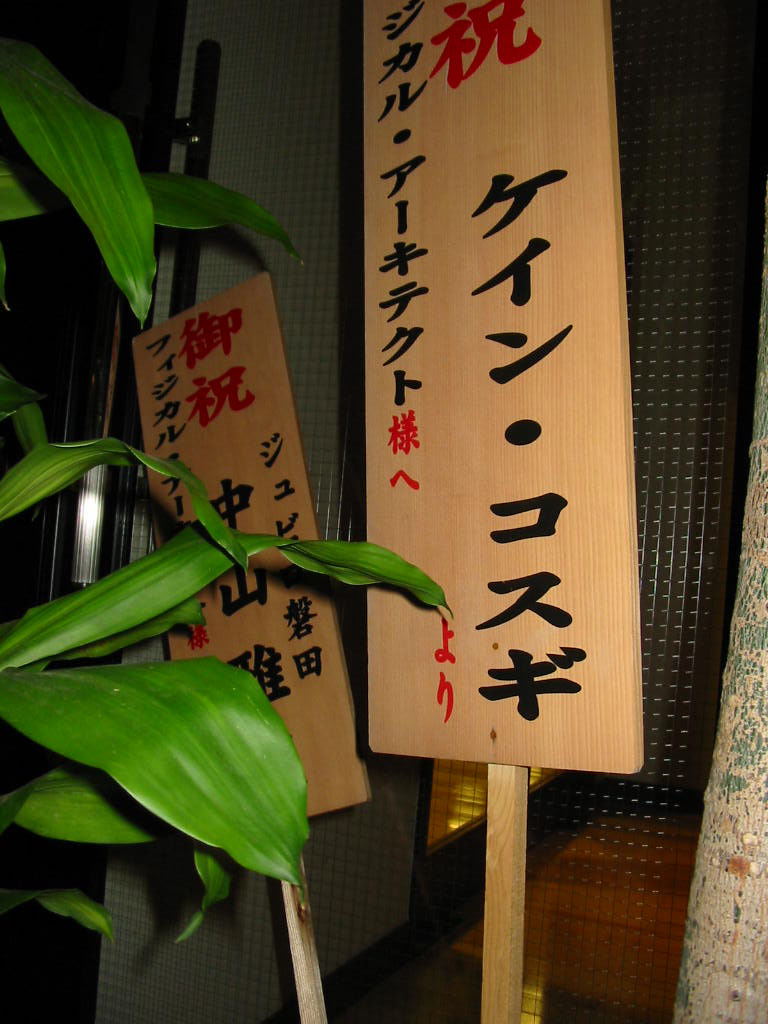 祝
ケイン・コスギ
より
ジカル・アーキテクト様へ
御祝
ジュビロ磐田
中山雅
フィジカル・アー
様